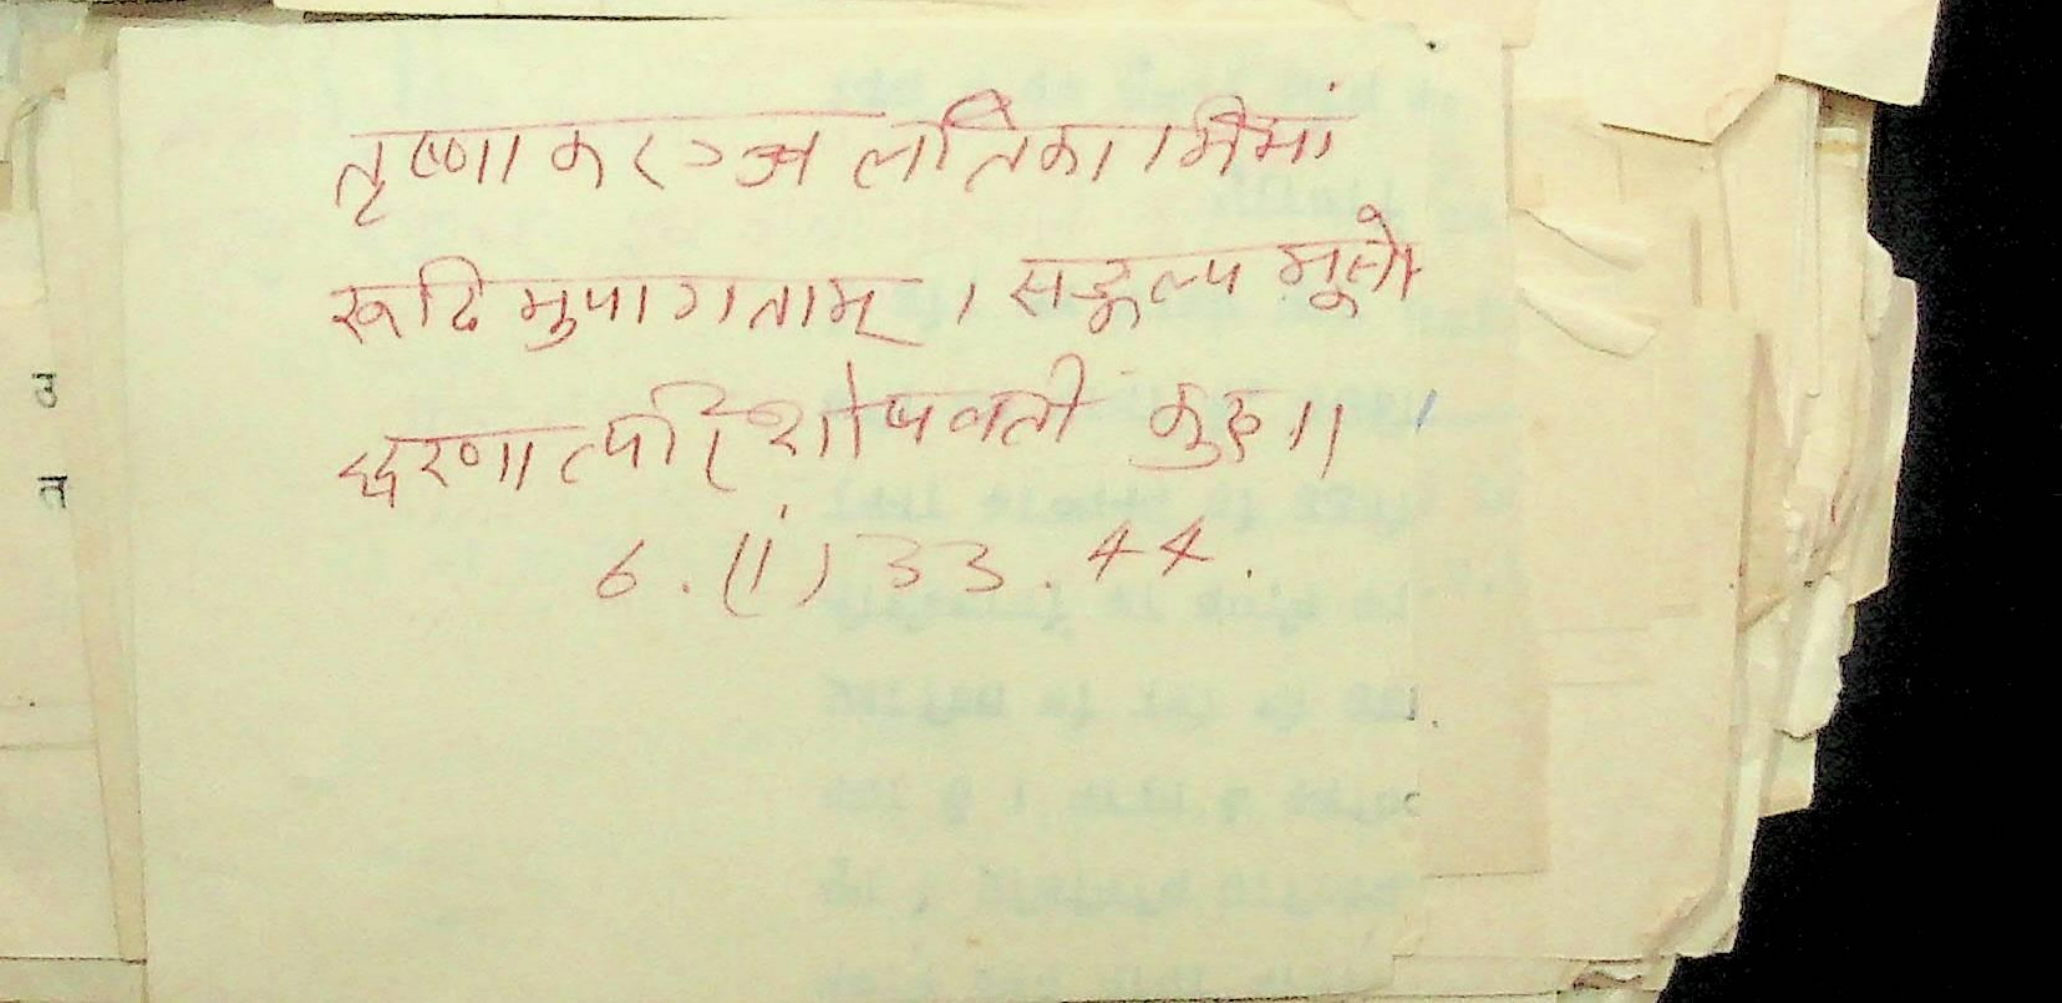 तृष्णाकरञ्जलतिकामिमां
रूढिमुपागताम् । सङ्कल्पमूलो
द्धरणात्परिशोषवती कुरु ॥
6.(i) 33.44.
उ
त